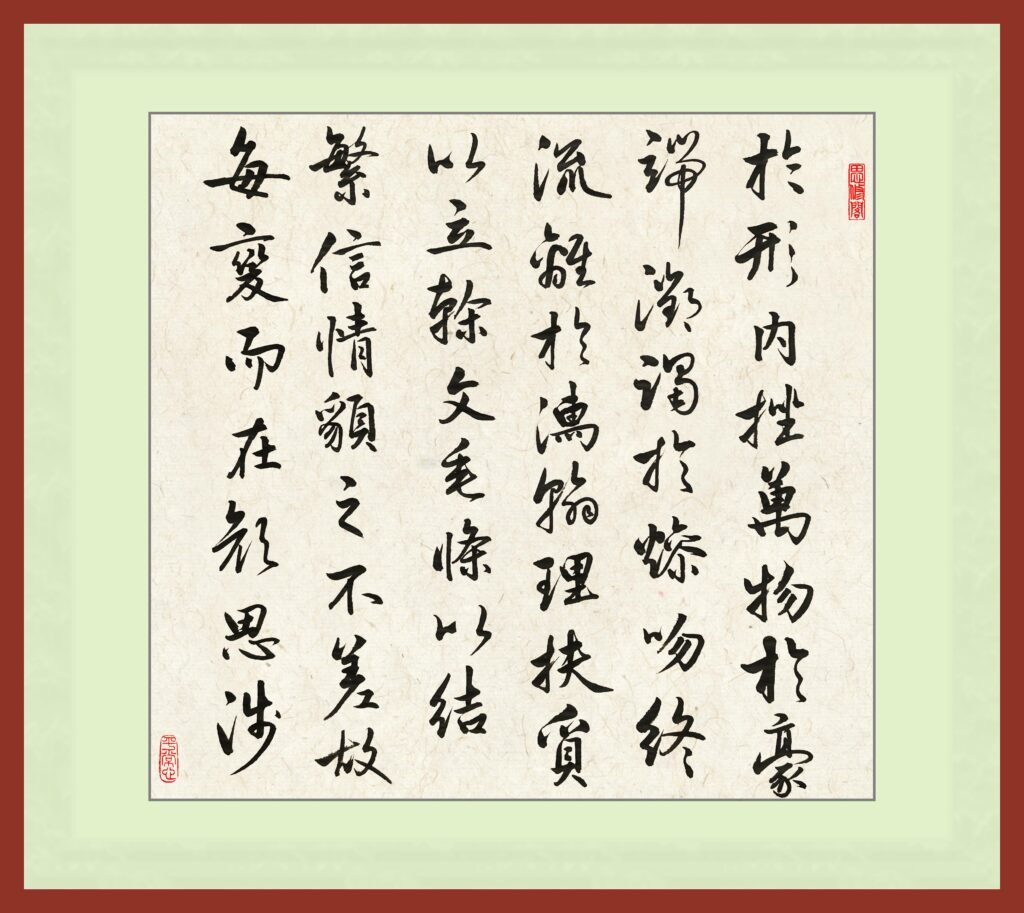 於形内挫萬物於豪
端躑躅於燥吻終
流離於濡翰理扶質
以立榦文垂條以結
繁信情貌之不差故
每變而在顏思涉
平常心